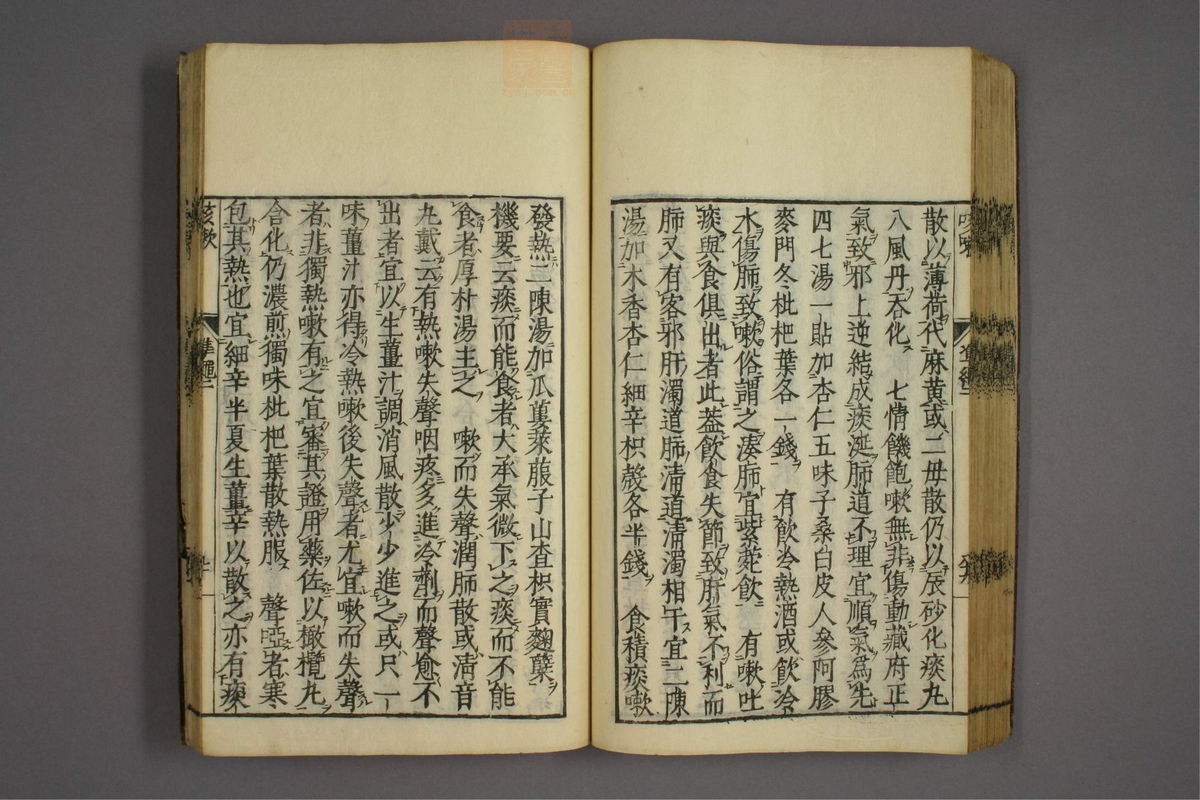 散以薄荷代麻黄或二母散仍以辰砂化痰丸
八風丹吞化 七情饑飽嗽無非傷動藏府正
氣致邪上逆結成痰涎肺道不理宜順氣爲先
四七湯一貼加杏仁五味子桑白皮人參阿膠
麥門冬枇杷葉各一錢 有飲冷熱酒或飲冷
水傷肺致嗽俗謂之湊肺宜紫菀飲 有嗽吐
痰與食俱出者此葢飲食失節致肝氣不利而
肺又有客邪肝濁道肺清道清濁相干宜二陳
湯加木香杏仁細辛枳殼各半錢 食積痰嗽
發熱二陳湯加瓜蔞萊菔子山查枳實麴蘗
機要云痰而能食者大承氣微下之痰而不能
食者厚朴湯主之 嗽而失聲潤肺散或清音
丸戴云有熱嗽失聲咽疼多進冷劑而聲愈不
出者宜以生薑汁調消風散少少進之或只一
味薑汁亦得冷熱嗽後失聲者尤宜嗽而失聲
者非獨熱嗽有之宜審其證用藥佐以橄欖丸
含化仍濃煎獨味枇杷葉散熱服 聲啞者寒
包其熱也宜細辛半夏生薑辛以散之亦有痰
咳嗽 準繩二